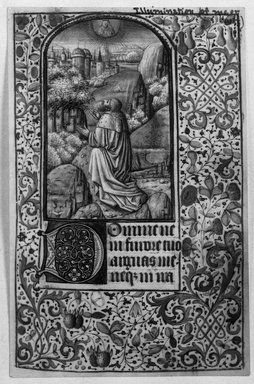 Illumination
Domine ne
in furore tuo
arguas me
neqz in ira